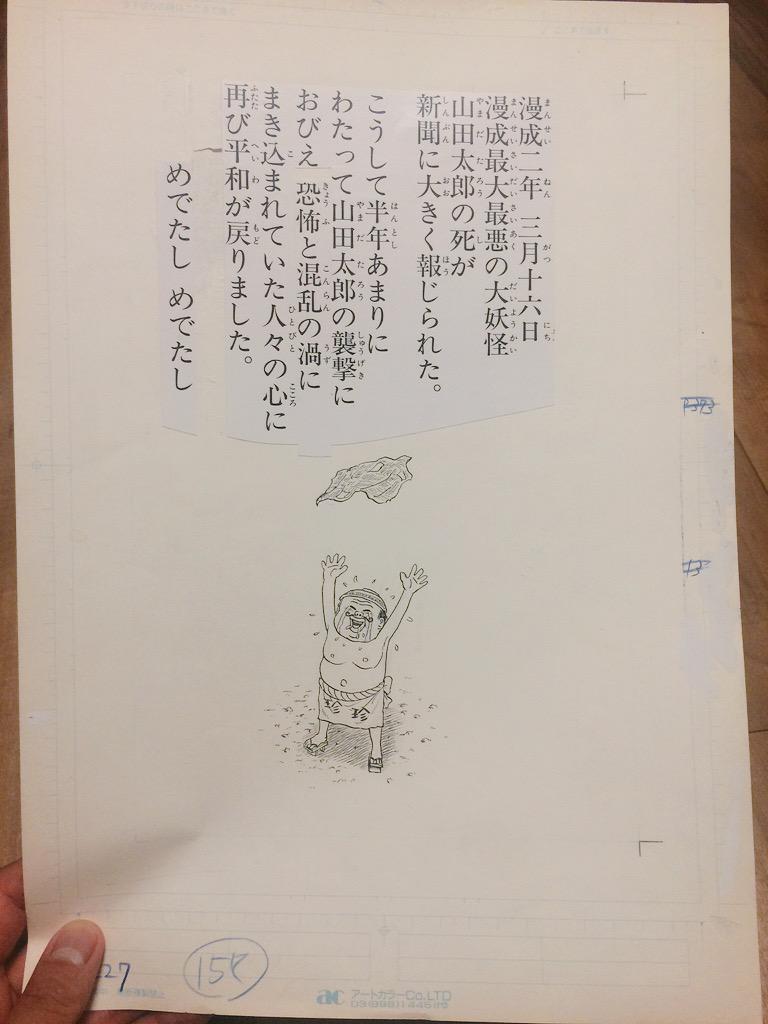 漫成二年 三月十六日
漫成最大最悪の大妖怪
山田太郎の死が
新聞に大きく報じられた。
こうして半年あまりに
わたって山田太郎の襲撃に
おびえ 恐怖と混乱の渦に
まき込まれていた人々の心に
再び平和が戻りました。
めでたし めでたし
27
ac アートカラーCo.,LTD